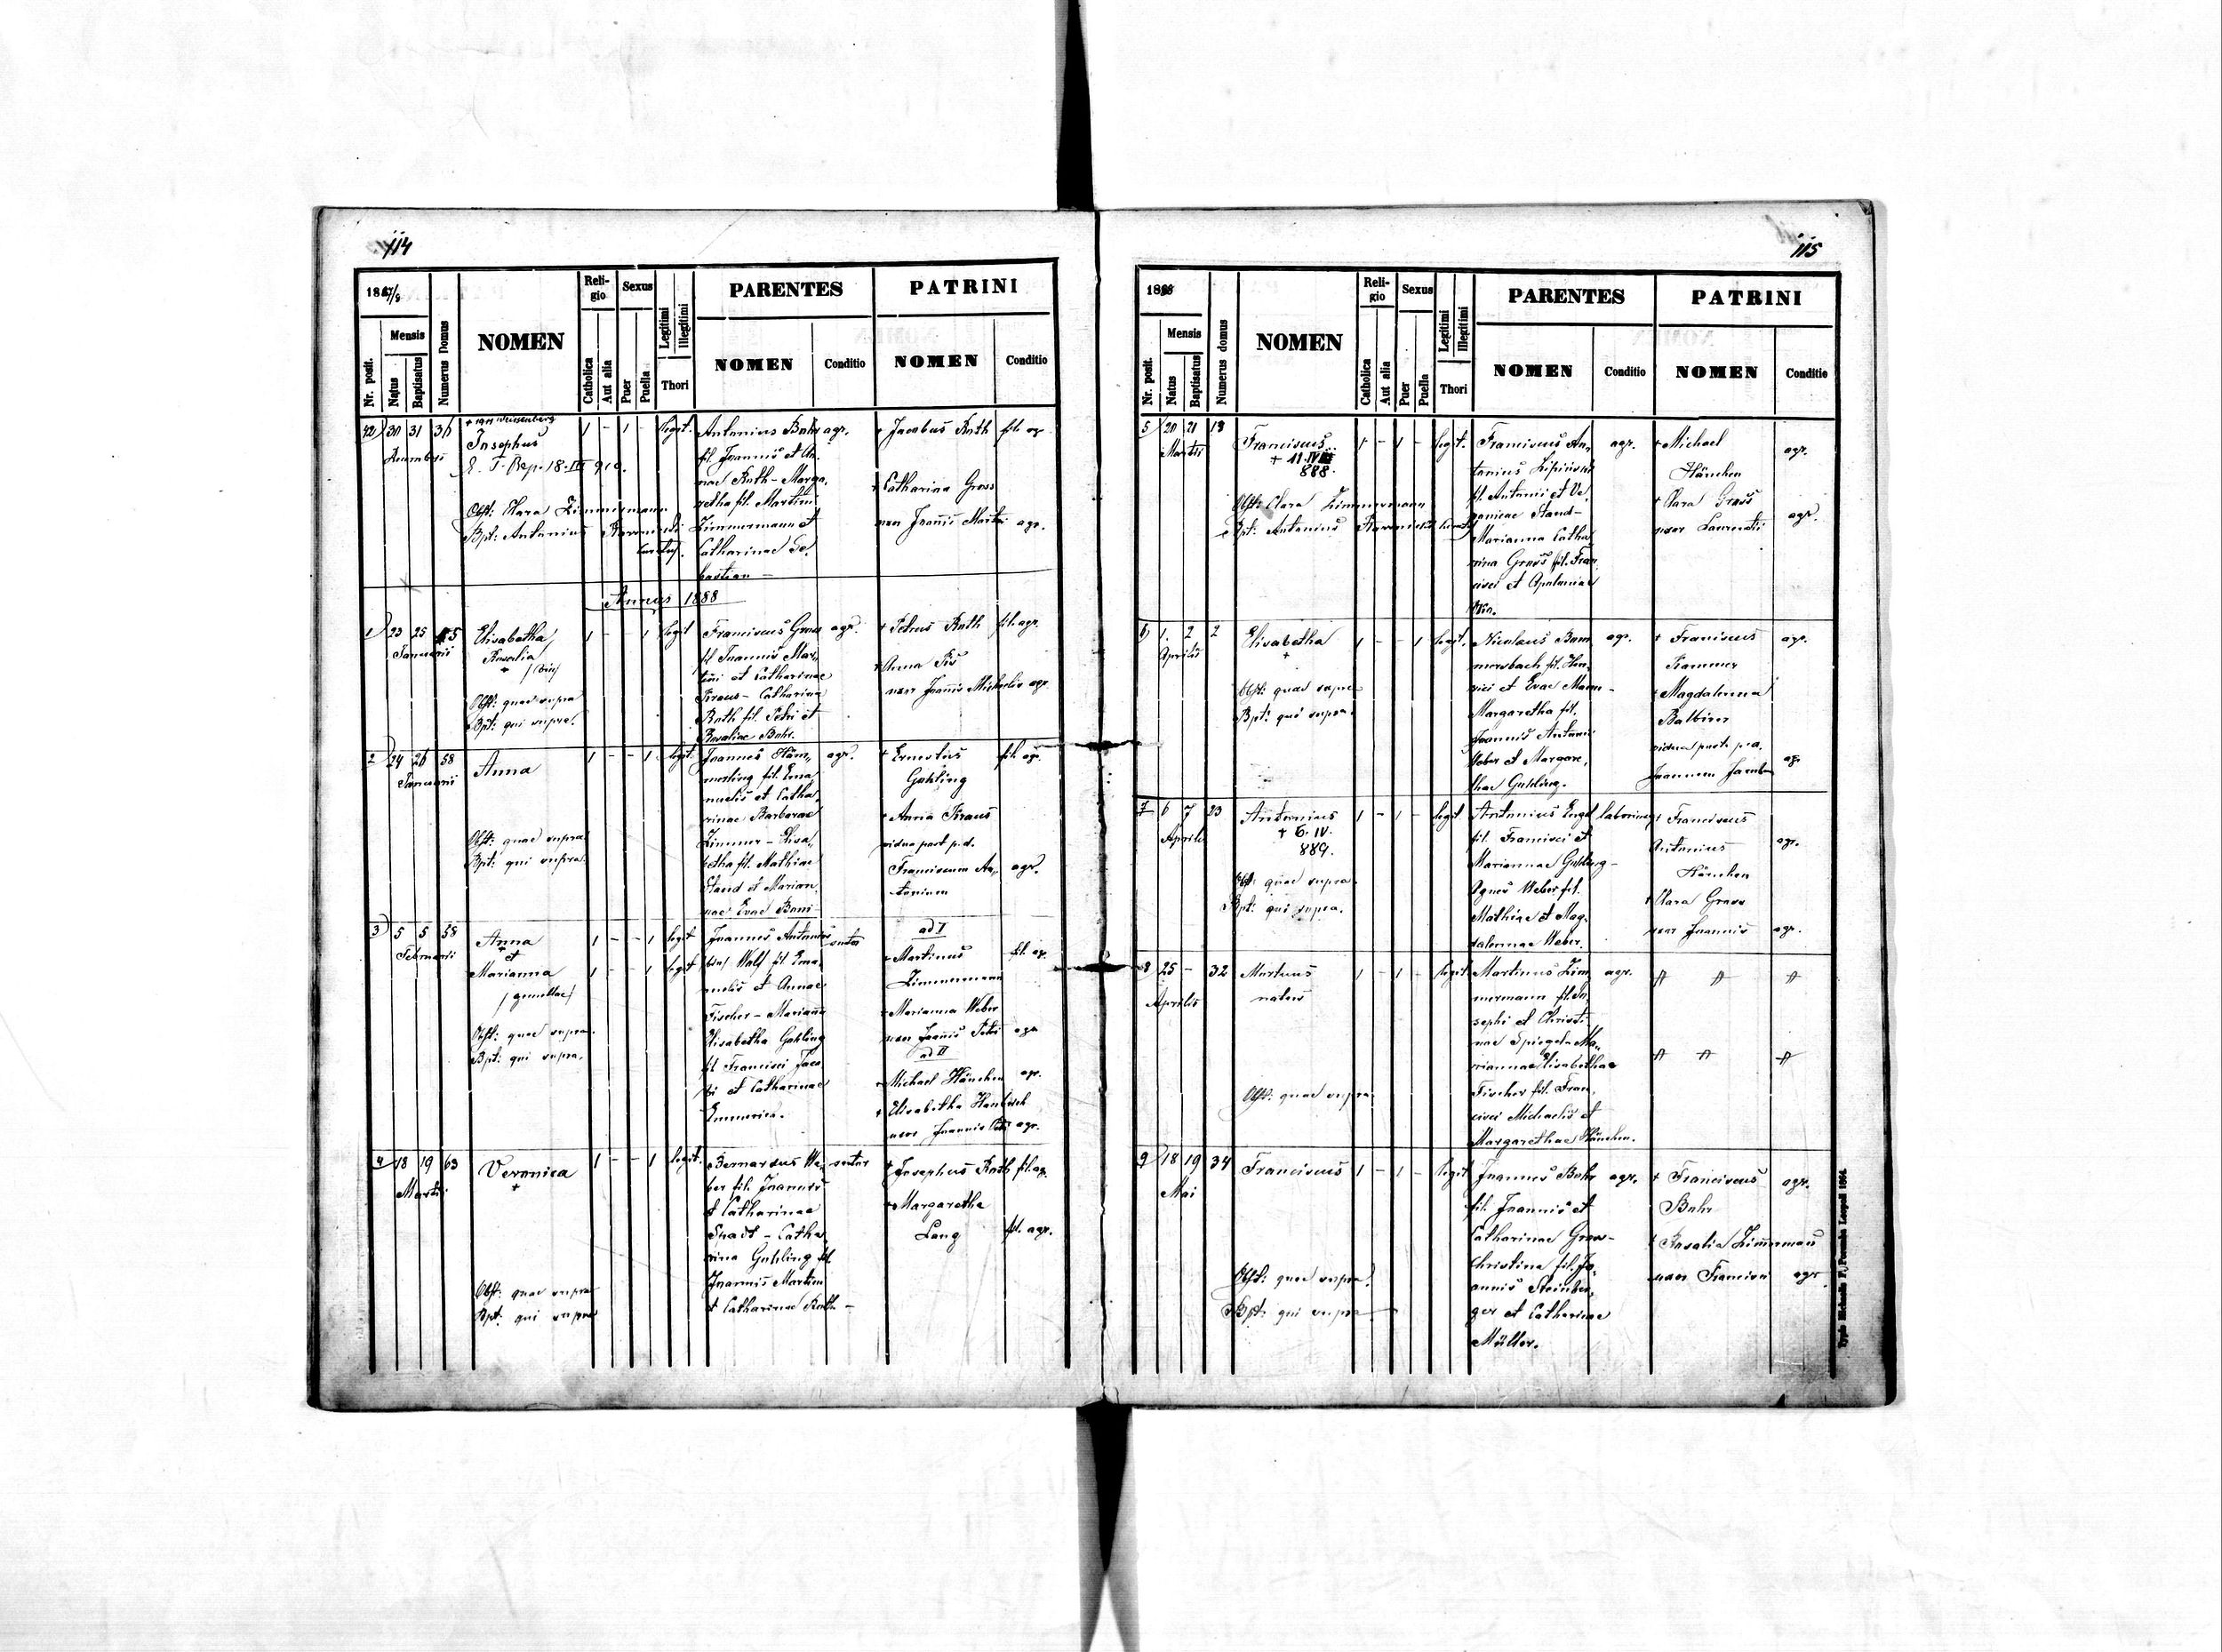 114
1887/8
Nr. posit.
Mensis
Natus
Baptisatus
Numerus Domus
NOMEN
Religio
Catholica
Aut alia
Sexus
Puer
Puella
Legitimi
Illegitimi
Thori
PARENTES
NOMEN
Conditio
PATRINI
NOMEN
Conditio
42) 30 31 36
Decembris
Josephus
1 - 1 - legit.
Obst: Clara Zimmermann
Bpt: Antonius
Antonius Bahr agr.
fil. Joannis et An,
nae Rath - Marga,
retha fil. Martini
Zimmermann et
Catharinae Se,
bastian -
+ Jacobus Rath fil. agr.
+ Catharina Gross
uxor Joannis Martini agr.
Annus 1888
1) 23 25
Januarii
Elisabetha
Rosalia
+ /bin/
Obst: quae supra
Bpt: qui supra.
1 - - 1 legit
Franciscus Gross agr.
fil Joannis Mar,
tini et Catharinae
Kraus - Catharina
Rath fil. Petri et
Rosaliae Bahr.
+ Petrus Rath fil. agr.
+ Anna
uxor Joannis Michaelis agr
2 24 26 58
Januarii
Anna
Obst: quae supra
Bpt: qui supra.
1 - - 1 legit
Joannes Häm,
merling fil. Ema,
nuelis et Catha,
rinae Barbarae
Zimmer - Elisa,
betha fil. Mathiae
Staud et Marian,
nae Evae
agr.
+ Ernestus fil. agr.
Guhling
+ Anna Kraus
vidua post p.d.
Franciscum An, agr.
tonium
3) 5 5 58
Februarii
Anna
et
Marianna
/gemellae/
Obst: quae supra.
Bpt: qui supra.
1 - - 1 legit
1 - - 1 legit
Joannes Antonius sutor
/bin/ Wald fil Ema,
nuelis et Annae
Fischer - Marianna
Elisabetha Guhling
fil Francisci Jaco
bi et Catharinae
Emmerich.
ad I
+ Martinus fil. agr.
Zimmermann
+ Marianna Weber
uxor Joannis Petri agr
ad II
+ Michael Hänchen agr.
+ Elisabetha
uxor Joannis Petri agr.
4) 18 19 63
Martii
Veronica
+
Obst: quae supra
Bpt: qui supra
1 - - 1 legit.
Bernardus We, sutor
ber fil. Joannis
et Catharinae
Spadt - Catha,
rina Guhling fil.
Joannis Martini
et Catharinae Rath -
+ Josephus Rath fil. agr.
+ Margaretha
Lang fil. agr.
115
1888
Nr. posit.
Mensis
Natus
Baptisatus
Numerus domus
NOMEN
Religio
Catholica
Aut alia
Sexus
Puer
Puella
Legitimi
Illegitimi
Thori
PARENTES
NOMEN
Conditio
PATRINI
NOMEN
Conditio
5 20 21 18
Martii
Franciscus
888.
Obst: Clara Zimmermann
Bpt: Antonius
1 - 1 - legit.
Franciscus An, agr.
tonius Lipinski
fil. Antonii et Ve,
ronicae Staud -
Marianna Catha,
rina Gross fil. Fran,
cisci et Apoloniae
+ Michael agr.
Hänchen
+ Clara Gross
uxor Laurentii agr.
6) 1. 2 2
Aprilis
Elisabetha
+
Obst: quae supra
Bpt: qui supra.
1 - - 1 legit.
Nicolaus Bom agr.
mersbach fil. Hen,
rici et Evae Mann -
Margaretha fil.
Joannis Antonii
Weber et Margare,
thae Guhling.
+ Franciscus agr.
Krammer
+ Magdalenna
vidua post p.d.
Joannem Jacobum agr
7 6 7 23
Aprilis
Antonius
+ 6. IV.
889.
Obst: quae supra
Bpt: qui supra.
1 - 1 - legit
Antonius Engel
fil. Francisci et
Mariannae Guhling -
Agnes Weber fil.
Mathiae et Mag,
dalennae Weber.
+ Franciscus
Antonius agr.
Hänchen
+ Clara Gross
uxor Joannis agr.
8 25 - 32
Aprilis
Mortuus
natus
Obst: quae supra
1 - 1 - legit.
Martinus Zim, agr.
mermann fil. Jo,
sephi et Christi,
nae Spiegel - Ma,
riannae Elisabethae
Fischer fil. Fran,
cisci Michaelis et
Margarethae Hänchen.
9 18 19 34
Mai
Franciscus
Obst: quae supra.
Bpt: qui supra
1 - 1 - legit
Joannes Bahr agr.
fil. Joannis et
Catharinae Gross -
Christina fil. Jo,
annis Steinber,
ger et Catharinae
Müller.
+ Franciscus agr.
Bahr
+ Rosalia Zimmermann
uxor Francisci agr.